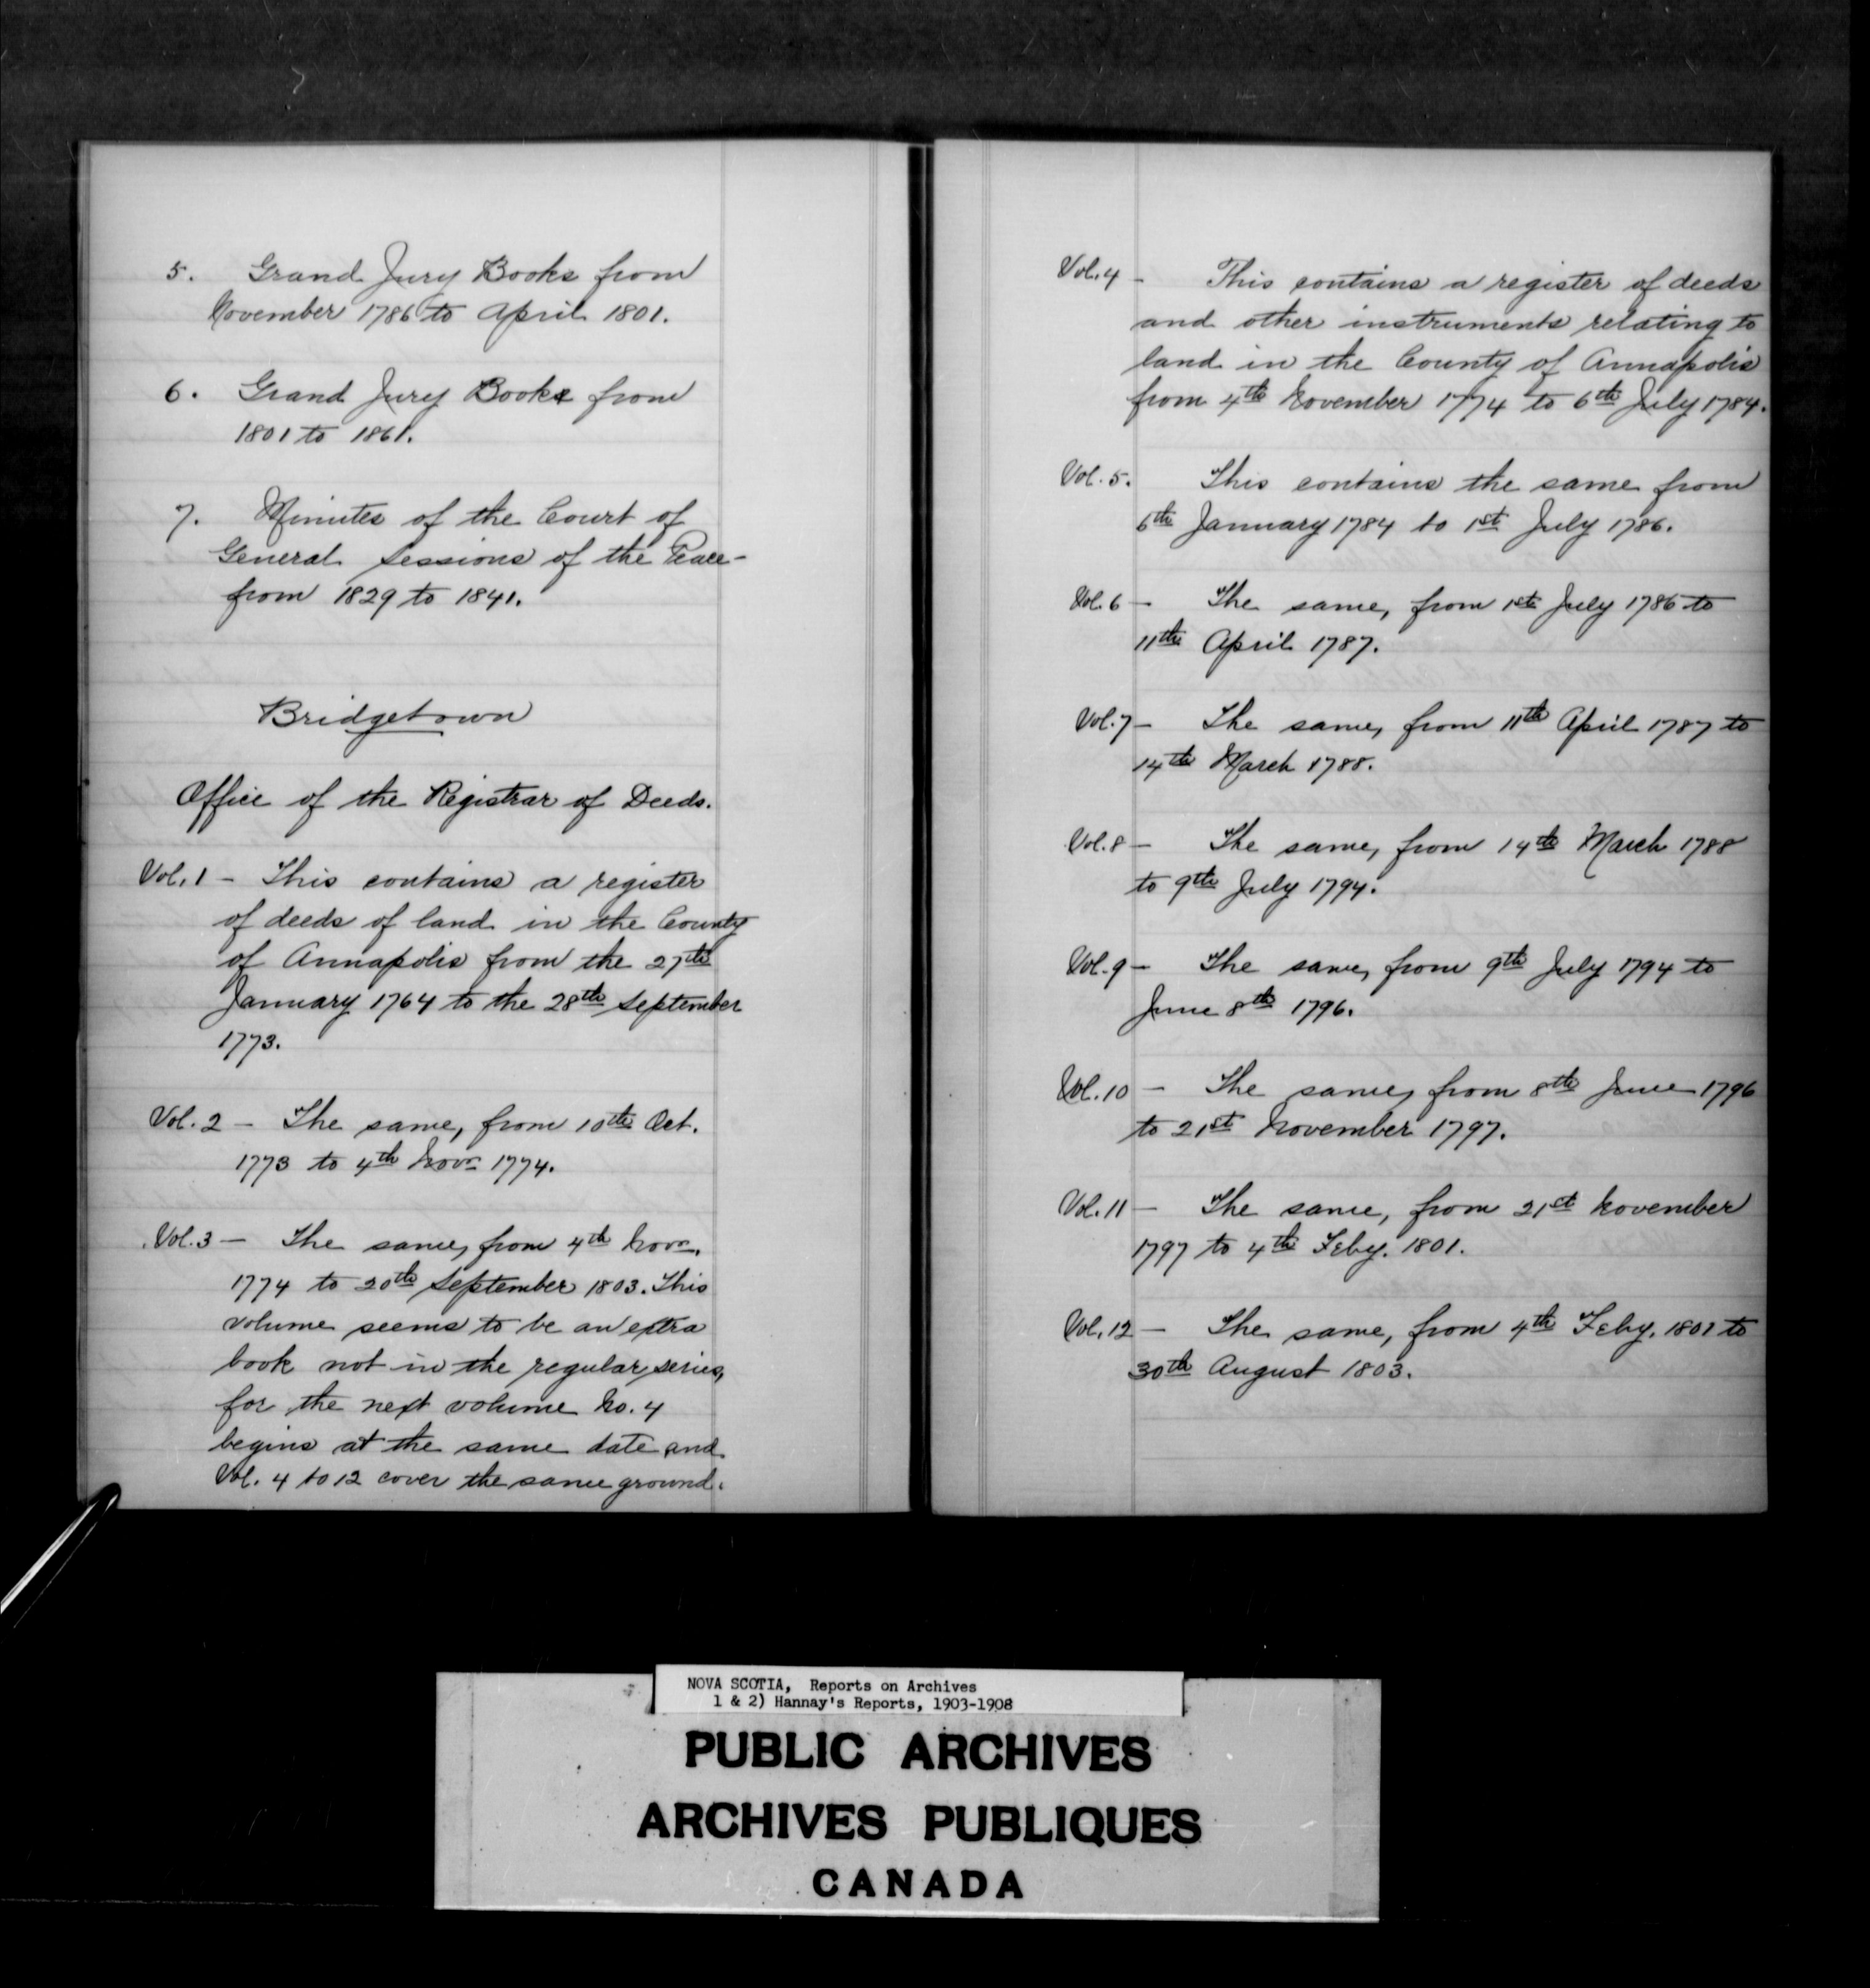 5. Grand Jury Books from
November 1786 to April 1801.
6. Grand Jury Books from
1801 to 1861.
7. Minutes of the Court of
General Sessions of the Peace-
from 1829 to 1841.
Bridgetown
Office of the Registrar of Deeds.
Vol. 1 - This contains a register
of deeds of land in the County
of Annapolis from the 27th
January 1764 to the 28th September
1773.
Vol. 2 - The same, from 10th Oct.
1773 to 4th Novr 1774.
Vol. 3 - The same, from 4th Novr.
1774 to 20th September 1803. This
volume seems to be an extra
book not in the regular series,
for the next volume No. 4
begins at the same date and
Vol. 4 to 12 cover the same ground.
Vol. 4 - This contains a register of deeds
and other instruments relating to
land in the County of Annapolis
from 4th November 1774 to 6th July 1784.
Vol. 5. This contains the same from
6th January 1784 to 1st July 1786.
Vol. 6 - The same, from 1st July 1786 to
11th April 1787.
Vol. 7 - The same, from 11th April 1787 to
14th March 1788.
Vol. 8 - The same, from 14th March 1788
to 9th July 1794.
Vol. 9 - The same, from 9th July 1794 to
June 8th 1796.
Vol. 10 - The same, from 8th June 1796
to 21st November 1797.
Vol. 11 - The same, from 21st November
1797 to 4th Feby. 1801.
Vol. 12 - The same, from 4th Feby. 1801 to
30th August 1803.
NOVA SCOTIA, Reports on Archives
1 & 2) Hannay's Reports, 1903-1908
PUBLIC ARCHIVES
ARCHIVES PUBLIQUES
CANADA